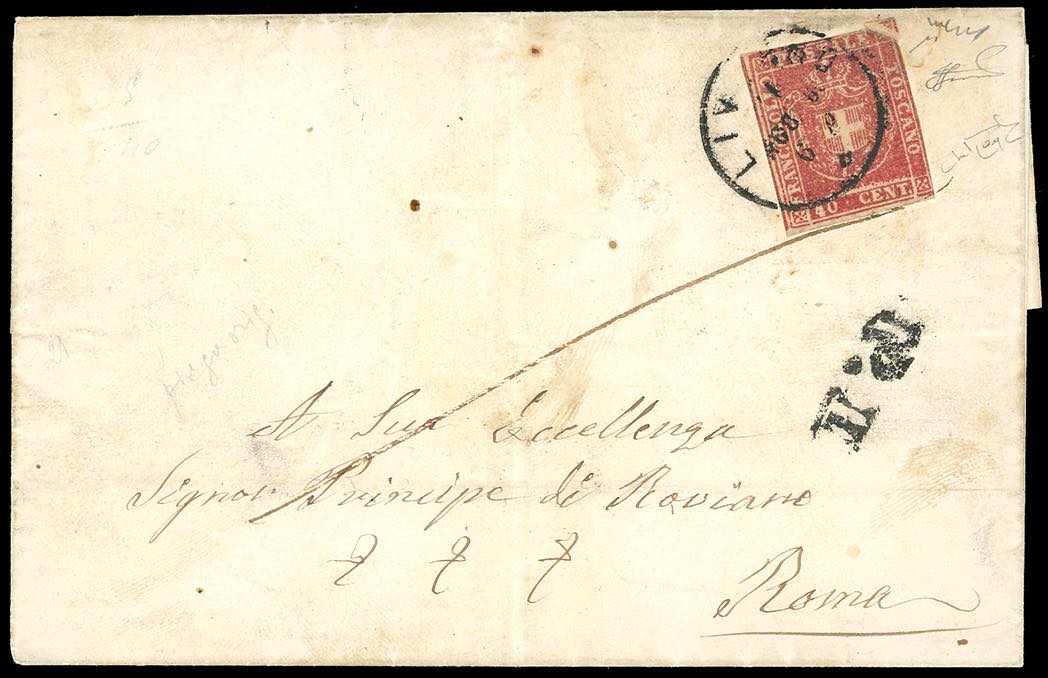 FRANCOBOLLO POSTALE TOSCANO
40 CENT.
LIV
P.D
piego orig.
A Sua Eccellenza
Signor Principe di Roviano
Roma